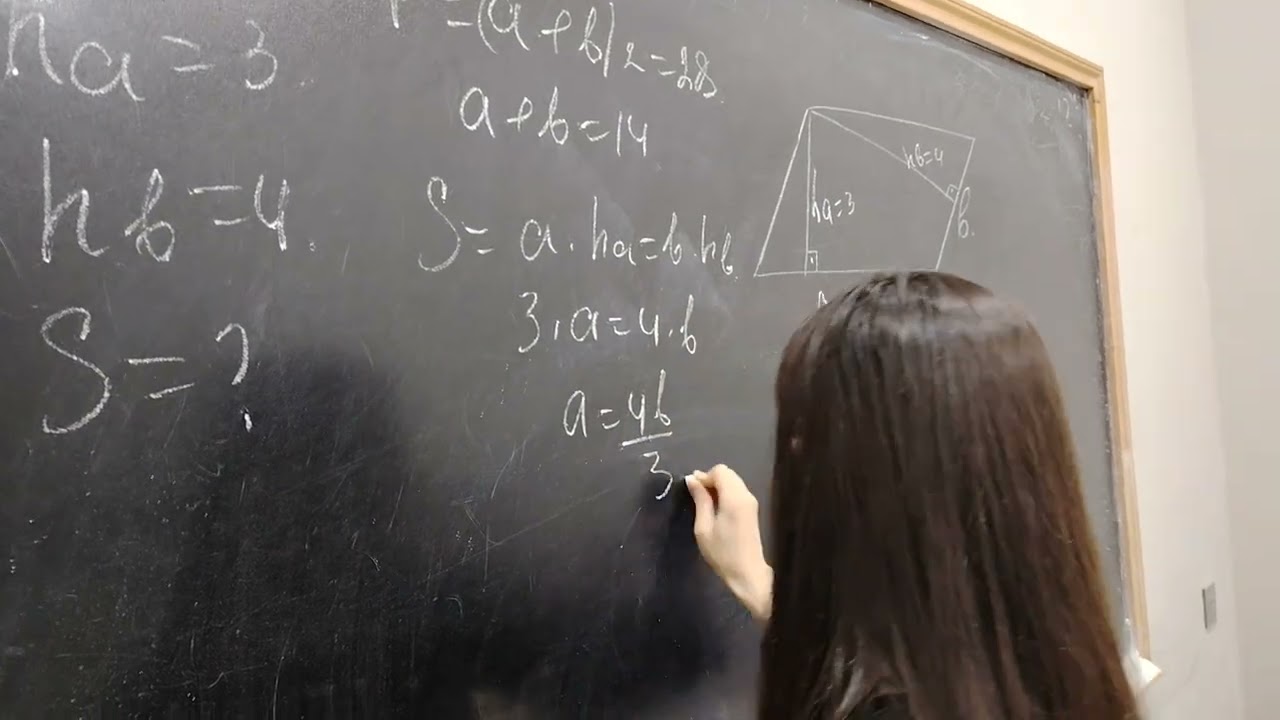 ha=3
hb=4.
S=?
=(a+b)2=28
a+b=14
S=a·ha=b·hb
3·a=4·b
a=4b/3
hb=4
ha=3
b.